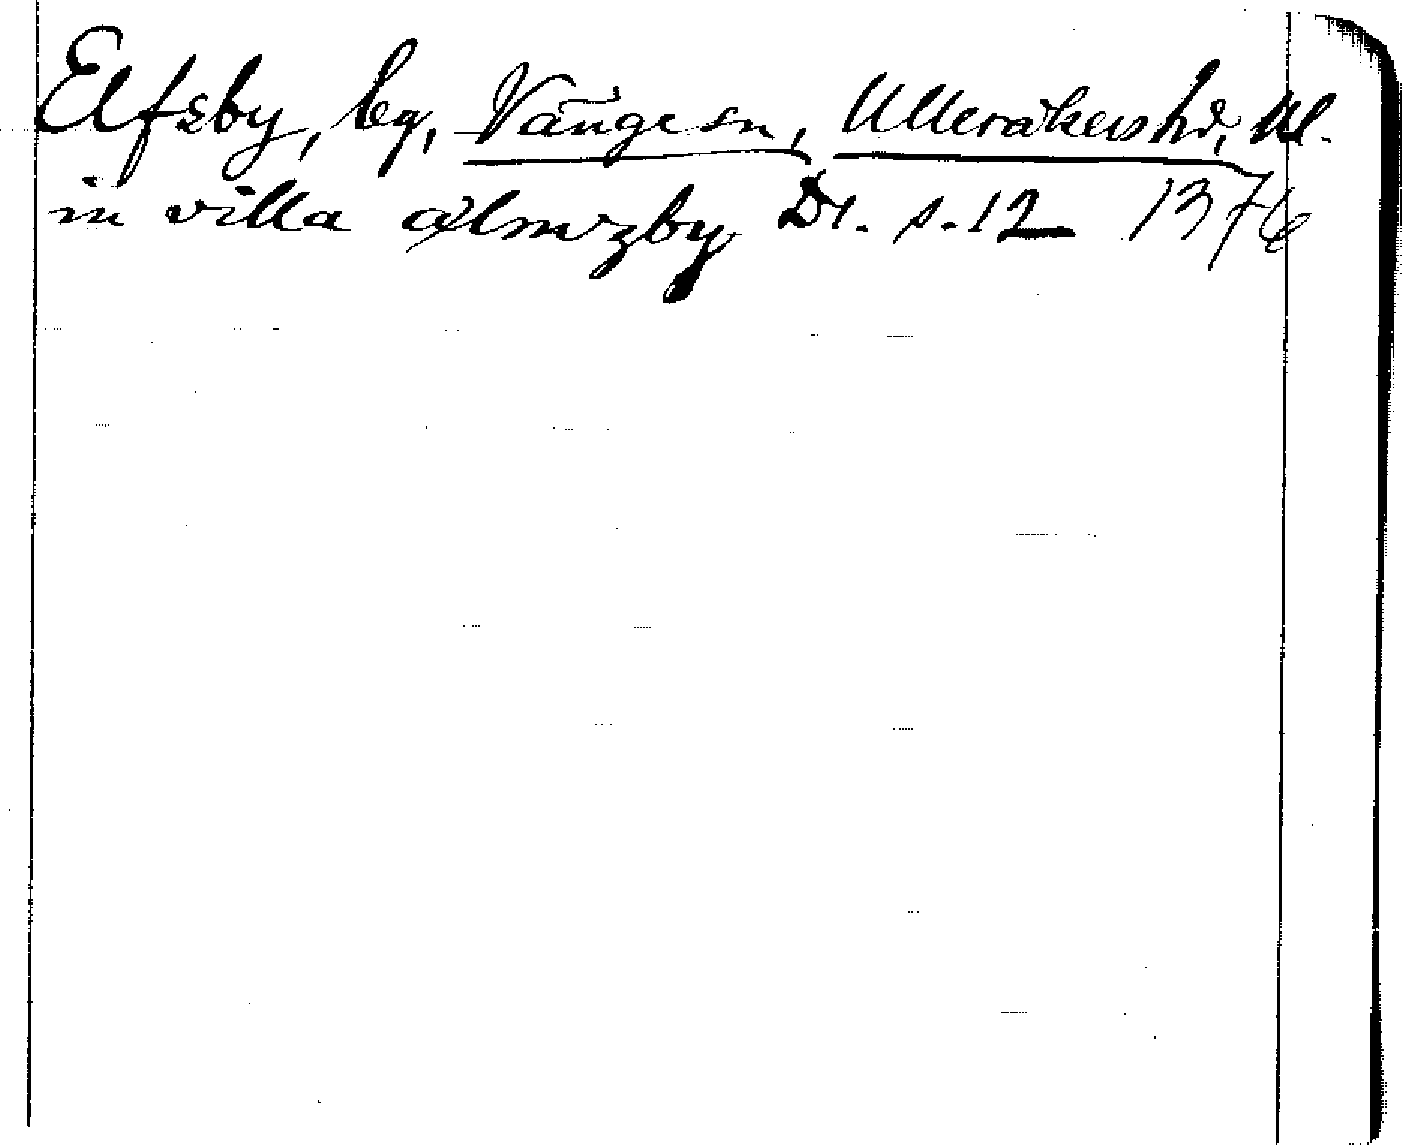 Elfsby, by, Vänge sn, Ulleråkers hd, Upl.
in villa ælmvzby Dr. s. 12 1376